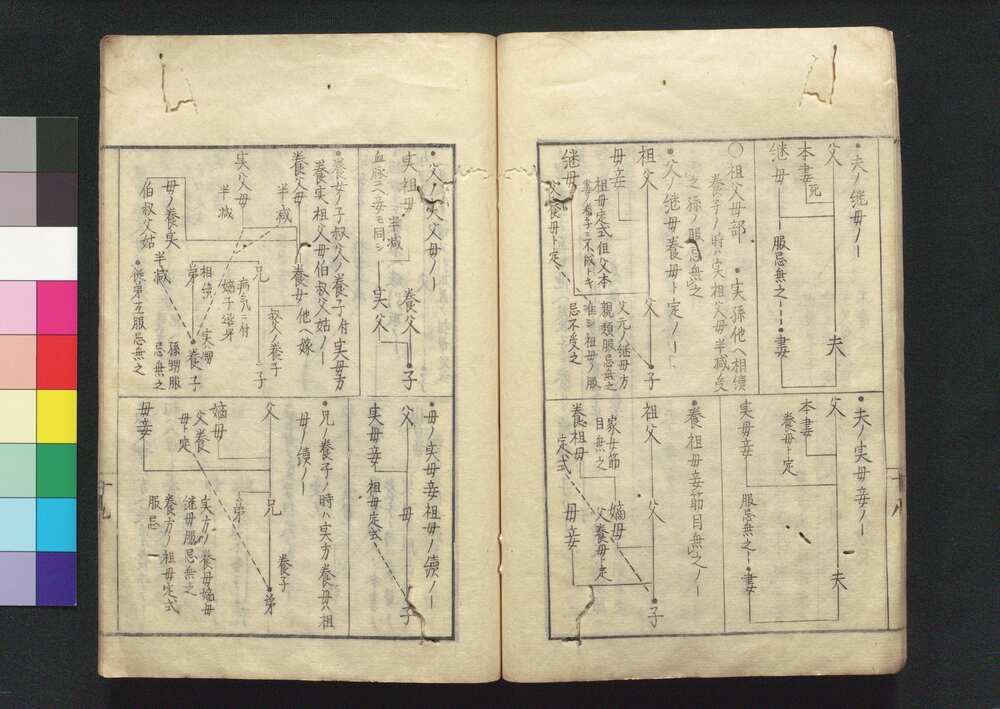 ・夫ノ継母ノ一
父
本妻
死
継母
服忌無之一
夫
妻
〇祖父母部
・実孫他ヘ相続
養子ノ時ハ実祖父母半減受
之孫ノ服忌無之
・父ノ継母養母ト定ノ一
祖父
父
子
母妾
祖母定式但父本
父元ノ継母方
親類服忌無之
忌不受之
継母
父養母ト定
・夫ノ実母妾ノ一
父
本妻
養母ト定
実母妾
服忌無之一
夫
妻
・養祖母妾筋目無之ノ一
祖父
父
子
家女節
目無之
嫡母
父養母ト定
養祖母
定式
母妾
・父ノ実父母ノ一
実祖母
半減
血脉云ヘ妾モ同シ
養父
実父
子
・養女ノ子叔父ノ養子付実母方
養実祖父母伯叔父姑ノ一
養父母
半減
養母ノ他ヘ嫁
実父母
半減
兄
病気ニ付
嫡子退身
叔父ノ養子
子
弟
相続
養子
母ノ養実
伯叔父姑
半減
・従弟互服忌無之
孫甥服
忌無之
・母ノ実母妾祖母ノ続ノ一
父
母
子
実母妾
祖母定式
・兄ノ養子ノ時ハ実方ノ養母ハ祖
母ノ続ノ一
父
兄
養子
弟
嫡母
父養
母ト定
弟
母妾
実方ノ養母嫡母
継母服忌無之
養方ノ祖母定式
服忌
十八
十九